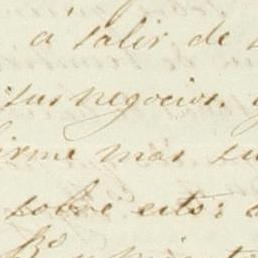 a salir de
sus negocios.
firme mas su
sobre esto;